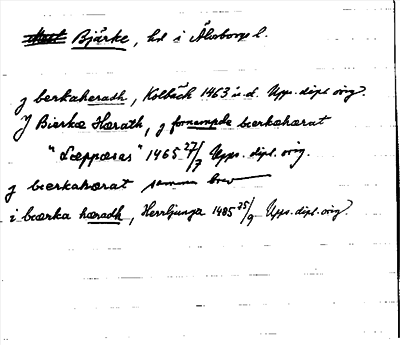 Bjärke, hd i Älvsborgs l.
j berkaheradh, Kolbäck 1463 u.d. Upps. dipl. orig.
J Bierkæ Hærath, j fornempda bierkæhærat
"Læpparas" 1465 27/7 Upps. dipl. orig.
j bierkahærat samma brev
i biærka hæradh, Herrljunga 1485 25/9 Upps. dipl. orig.